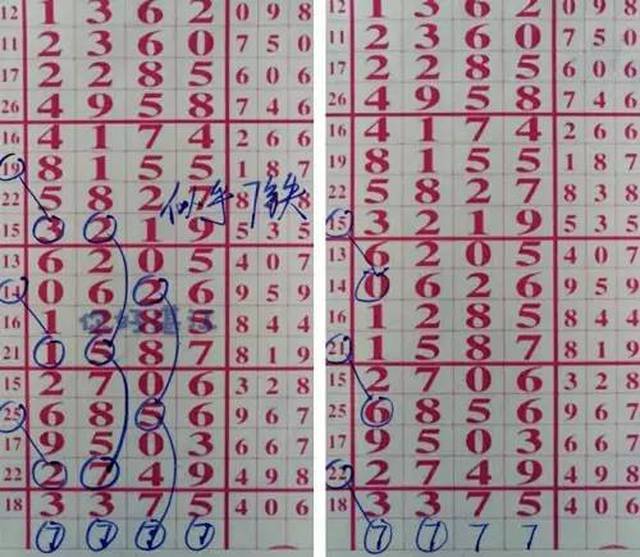 12 1 3 6 2 0 9 8
11 2 3 6 0 7 5 0
17 2 2 8 5 6 0 6
26 4 9 5 8 7 4 6
16 4 1 7 4 2 6 6
19 8 1 5 5 1 8 7
22 5 8 2 7 8 8
似乎7铁
15 3 2 1 9 5 3 5
13 6 2 0 5 4 0 7
14 0 6 2 6 9 5 9
16 1 2 8 5 8 4 4
21 1 5 8 7 8 1 9
15 2 7 0 6 3 2 8
25 6 8 5 6 9 6 7
17 9 5 0 3 6 6 7
22 2 7 4 9 4 9 8
18 3 3 7 5 4 0 6
7 7 7 7
12 1 3 6 2 0 9 8
11 2 3 6 0 7 5 0
17 2 2 8 5 6 0 6
26 4 9 5 8 7 4 6
16 4 1 7 4 2 6 6
19 8 1 5 5 1 8 7
22 5 8 2 7 8 3 8
15 3 2 1 9 5 3 5
13 6 2 0 5 4 0 7
14 0 6 2 6 9 5 9
16 1 2 8 5 8 4 4
21 1 5 8 7 8 1 9
15 2 7 0 6 3 2 8
25 6 8 5 6 9 6 7
17 9 5 0 3 6 6 7
22 2 7 4 9 4 9 8
18 3 3 7 5 4 0 6
7 7 7 7